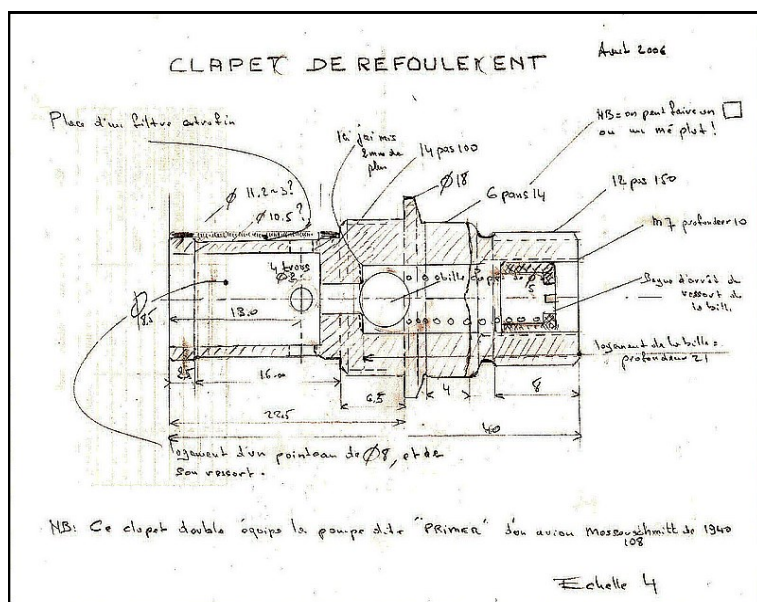 CLAPET DE REFOULEMENT
Avril 2006
Place d'un filtre extrafin
Ici j'ai mis
2mm de
plus
14 pas 100
Ø18
6 pans 14
NB = on peut faire un □
ou un mé plat !
12 pas 150
M7 profondeur 10
Ø 11.2~3?
Ø 10.5?
4 trous
Ø3
bille
Ø
8.5
13.0
Bague d'arrêt de
ressort de
la bille.
logement de la bille =
profondeur 21
2.5
16.
6.5
4
8
22.5
40
logement d'un pointeau de Ø8, et de
son ressort.
NB: Ce clapet double équipe la pompe dite "PRIMER" d'un avion Messouschmitt de 1940
108
Echelle 4